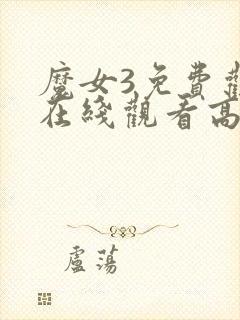 魔女3免費觀
在綫觀看高
盧蕩